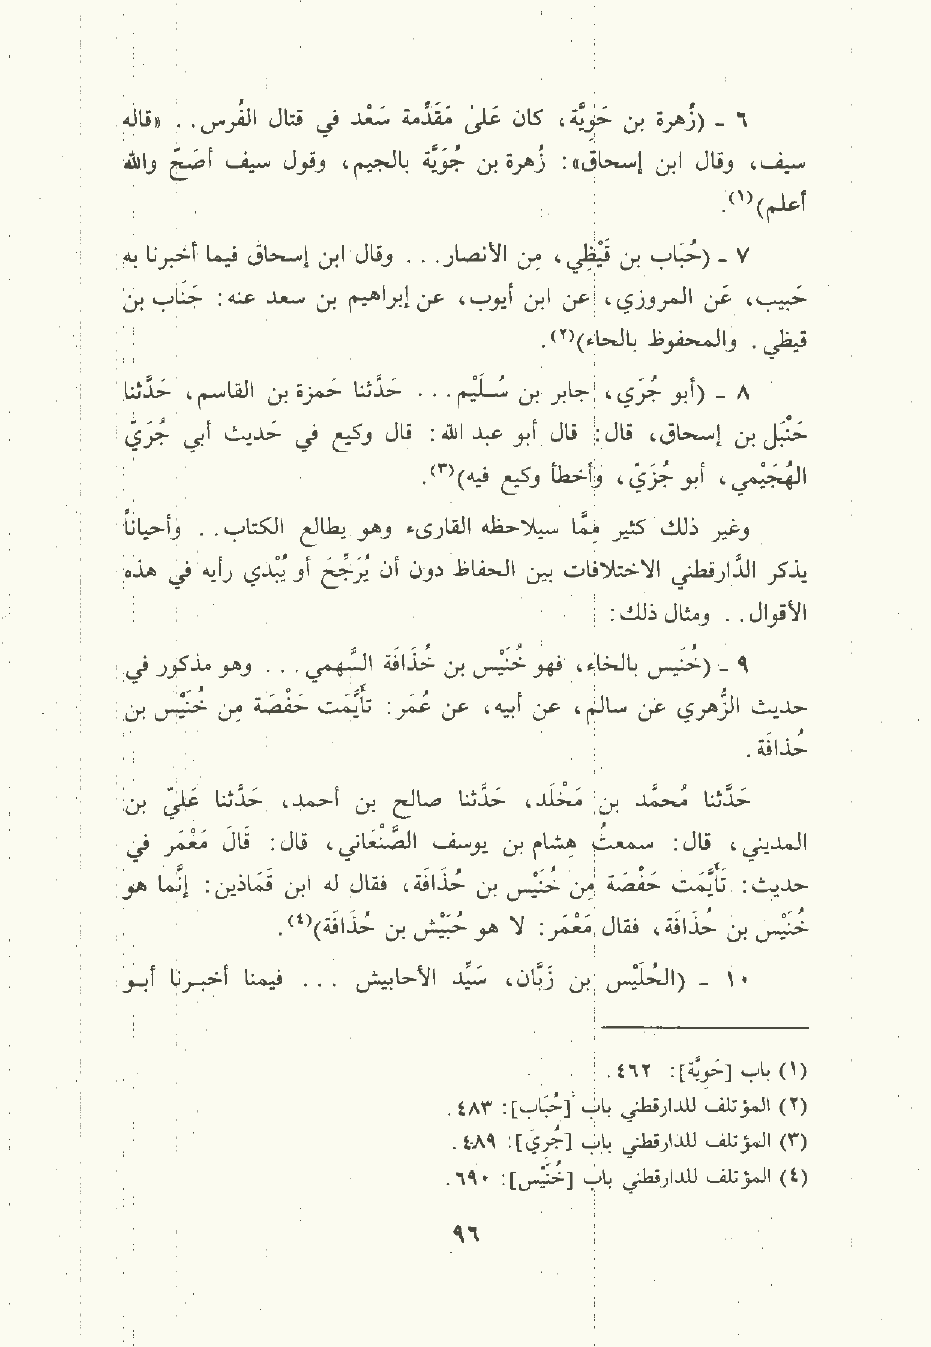 ٦ - (زُهرة بن حَوِيَّة، كان عَلىٰ مَقَدِّمة سَعْد في قتال الفُرس.. «قاله
سيف، وقال ابن إسحاق»: زُهرة بن جُوَيَّة بالجيم، وقول سيف أصَحّ والله
أعلم)(١).
٧ - (حُبَاب بن قَيْظِي، مِن الأنصار... وقال ابن إسحاق فيما أخبرنا به
حَبيب، عَن المروزي، عن ابن أيوب، عن إبراهيم بن سعد عنه: خَبَاب بن
قيظي. والمحفوظ بالحاء)(٢).
٨ - (أبو جُرَي، جابر بن سُـلَيْم... حَدَّثنا حَمزة بن القاسم، حَدَّثنا
حَنْبَل بن إسحاق، قال: قال أبو عبد الله: قال وكيع في حَديث أبي جُرَيّ
الهُجَيْمي، أبو جُزَيّ، وأخطأ وكيع فيه)(٣).
وغير ذلك كثير مِمَّا سيلاحظه القارىء وهو يطالع الكتاب.. وأحياناً
يذكر الدَّارقطني الاختلافات بين الحفاظ دون أن يُرَجِّحَ أو يُبْدي رأيه في هذه
الأقوال.. ومثال ذلك:
٩ - (خُنَيس بالخاء، فهو خُنَيْس بن حُذَافَة السَّهمي... وهو مذكور في
حديث الزُّهري عن سالم، عن أبيه، عن عُمَر: تأيَّمَت حَفْصَة مِن خُنَيْس بن
حُذافَة.
حَدَّثنا مُحمَّد بن مَخْلَد، حَدَّثنا صالح بن أحمد، حَدَّثنا عَليّ بن
المديني، قال: سمعتُ هشام بن يوسف الصَّنْعَاني، قال: قَالَ مَعْمَر في
حديث: تأيَّمَت حَفْصَة مِن خُنَيْس بن حُذَافَة، فقال له ابن قَمَاذين: إنَّما هو
خُنَيْس بن حُذَافَة، فقال مَعْمَر: لا هو حُبَيْش بن حُذَافَة)(٤).
١٠ - (الحُلَيْس بن زَبَّان، سَيِّد الأحابيش... فيمنا أخبـرنا أبـو
(١) باب [حَوِيَّة]: ٤٦٢.
(٢) المؤتلف للدارقطني باب [حُبَاب]: ٤٨٣.
(٣) المؤتلف للدارقطني باب [جُرَي]: ٤٨٩.
(٤) المؤتلف للدارقطني باب [خُنَيْس]: ٦٩٠.
٩٦